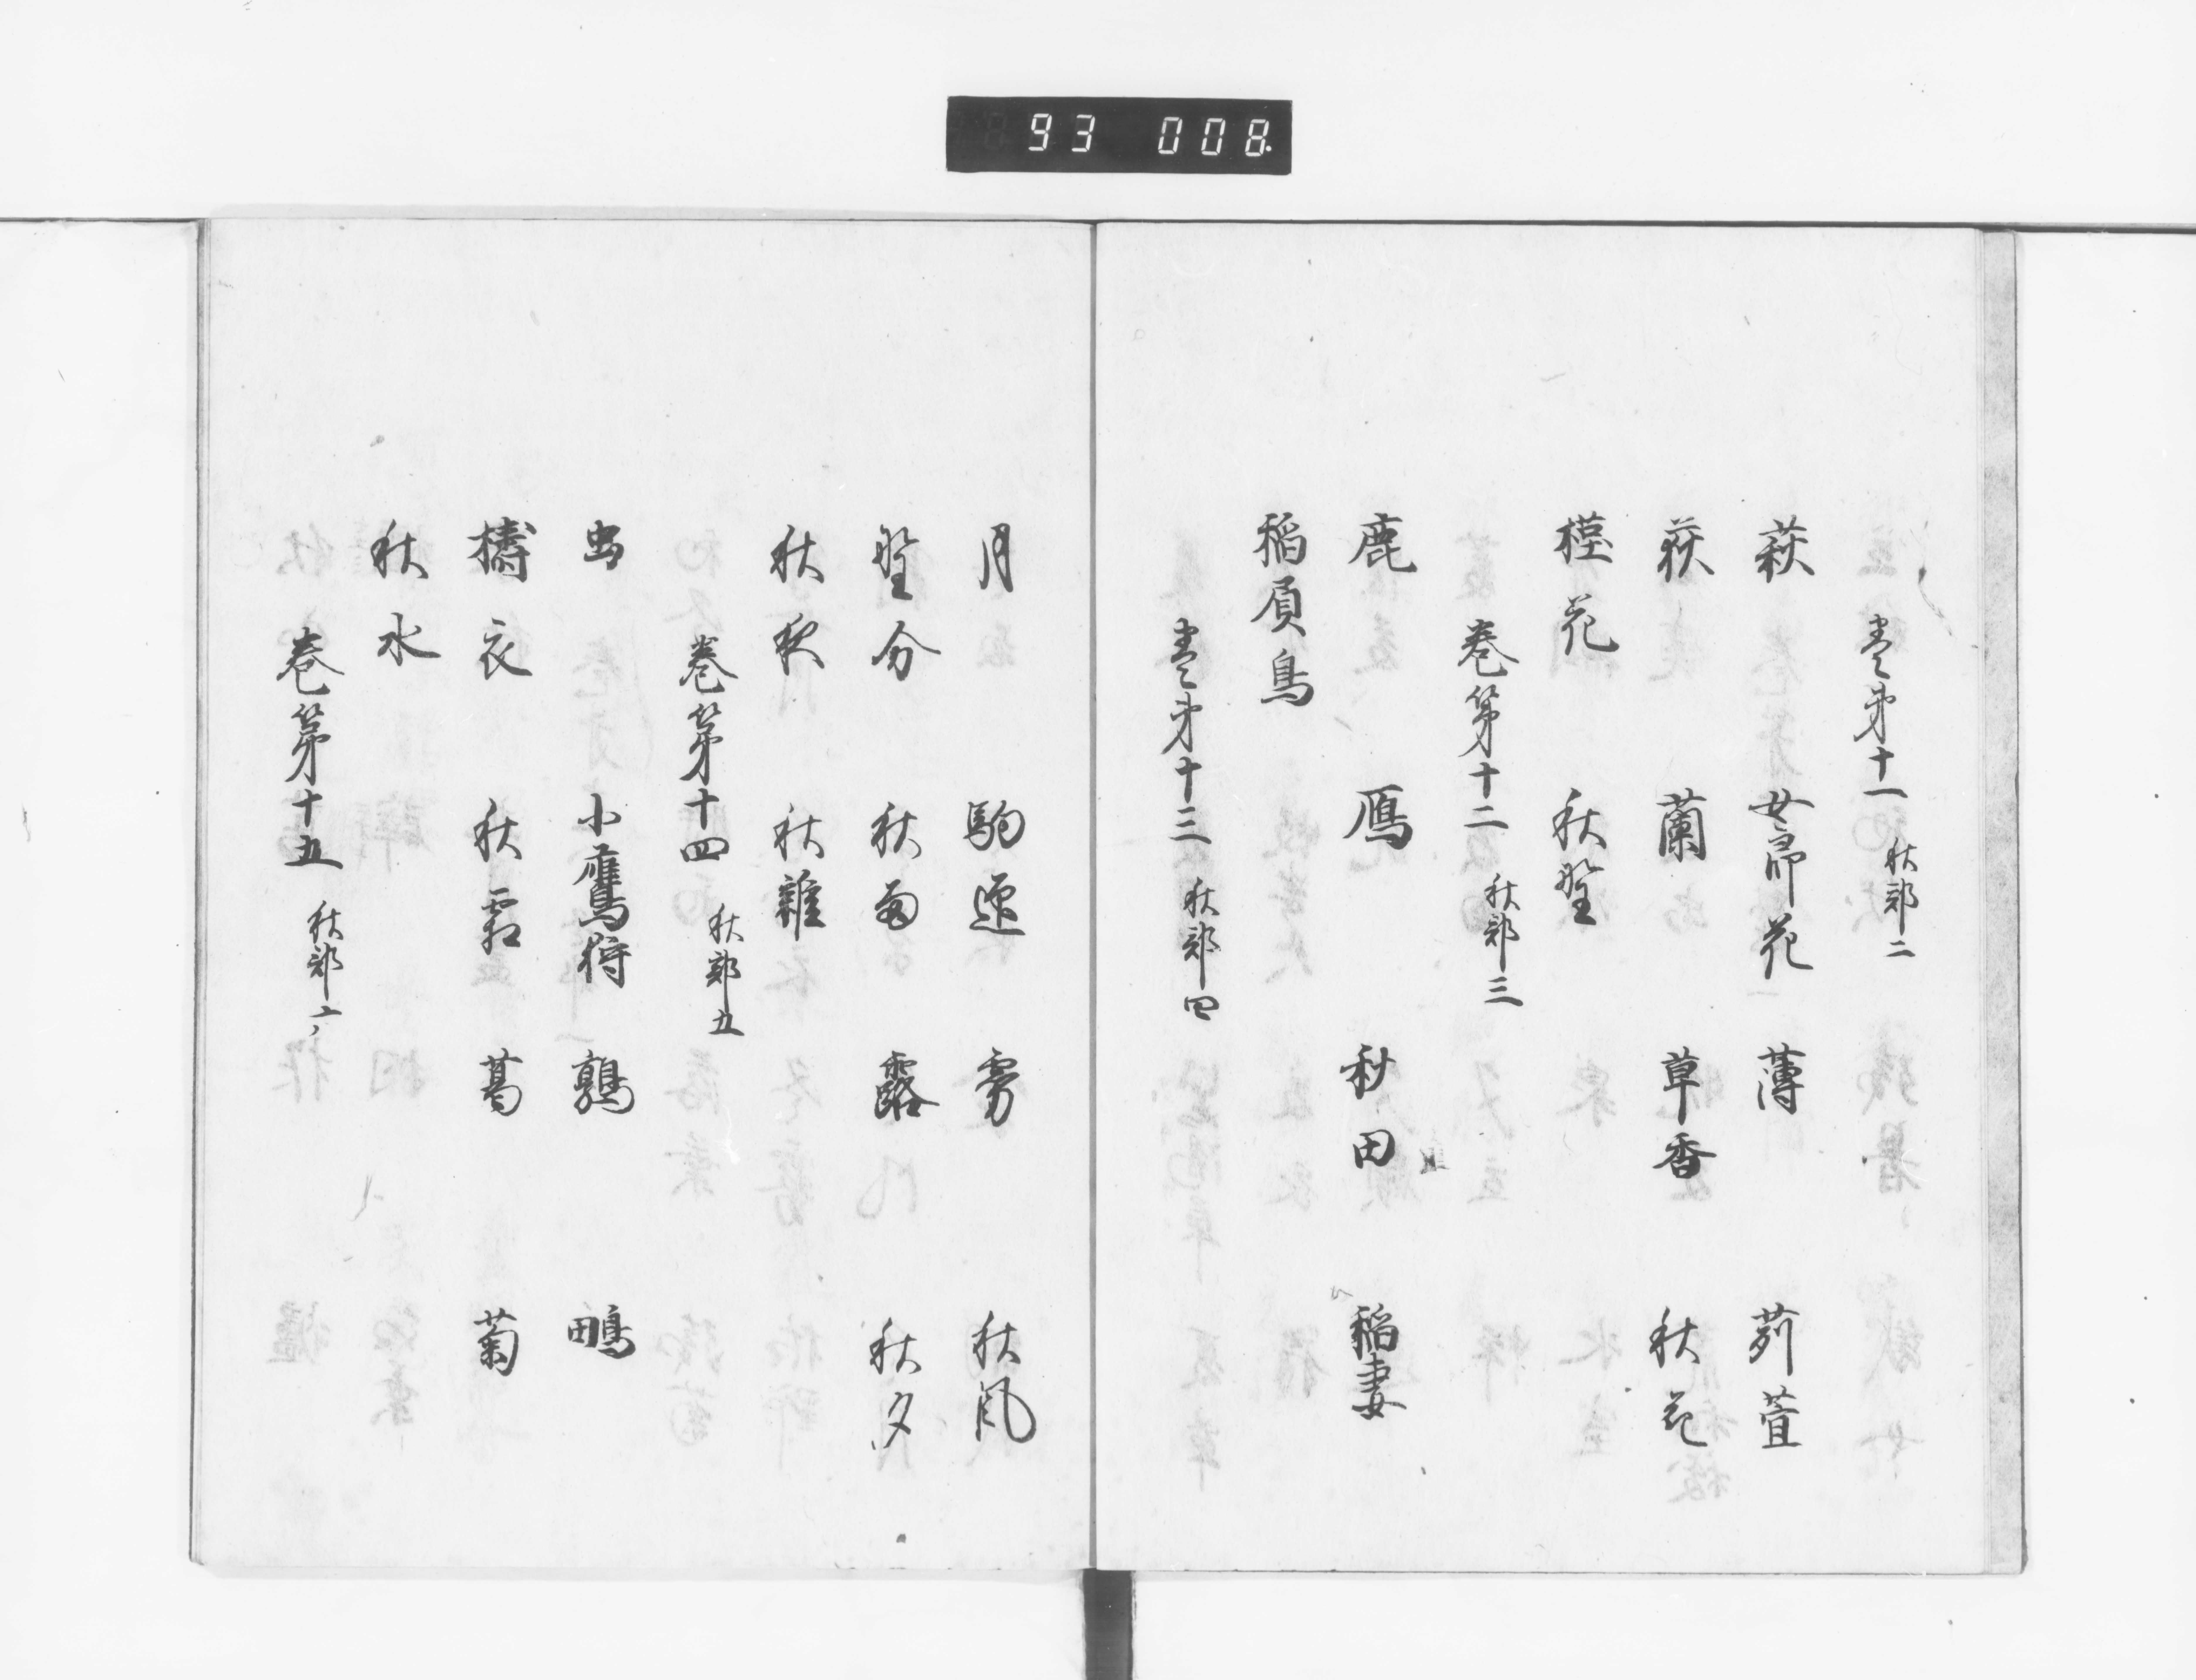 93 008
巻第十一 秋部二
萩 女郎花 薄 苅萱
荻 蘭 草香 秋花
槿花 秋野
巻第十二 秋部三
鹿 鴈 秋田 稲妻
稲負鳥
巻第十三 秋部四
月 駒迎 霧 秋風
野分 秋雨 露 秋夕
秋夜 秋雑
巻第十四 秋部五
虫 小鷹狩 鶉 鴫
擣衣 秋霜 葛 菊
秋水
巻第十五 秋部六